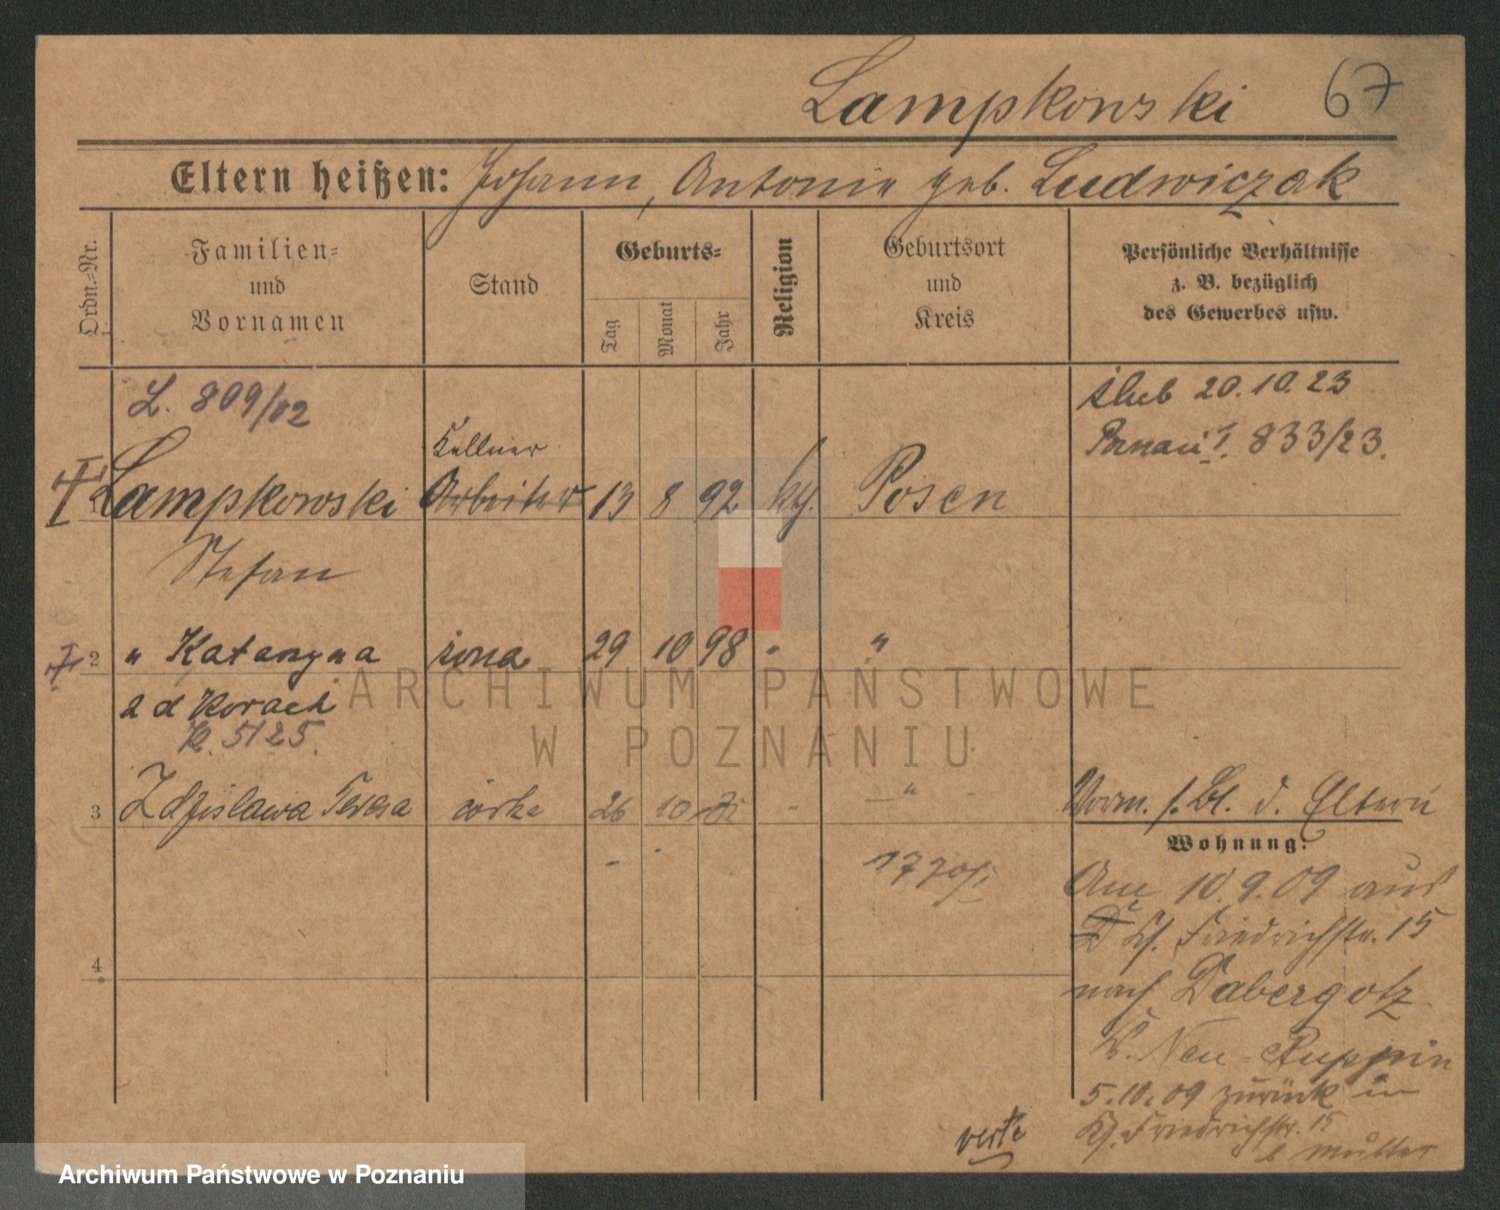 Lampkowski 67
Eltern heißen: Johann, Antonie geb. Ludwiczak
Ordn.-Nr.
Familien- und Vornamen
Stand
Geburts-
Tag
Monat
Jahr
Religion
Geburtsort und Kreis
Persönliche Verhältnisse z. B. bezüglich des Gewerbes usw.
L. 809/02
ślub 20.10.23
Poznań I. 833/23.
Kellner
1 Lampkowski Arbeiter 13 8 92 kg. Posen
Stefan
2 " Katarzyna żona 29 10 98 - "
z d Korach
K. 5125.
3 Zdzisława Teresa córka 26 10 - "
Vorm. s. Bl. d. Eltern
Wohnung:
Am 10.9.09 aus
Kl. Friedrichstr. 15
4
nach Dabergotz
K. Neu-Ruppin
5.10.09 zurück in
Kl. Friedrichstr. 15
b Mutter
verte
ARCHIWUM PAŃSTWOWE
W POZNANIU
Archiwum Państwowe w Poznaniu